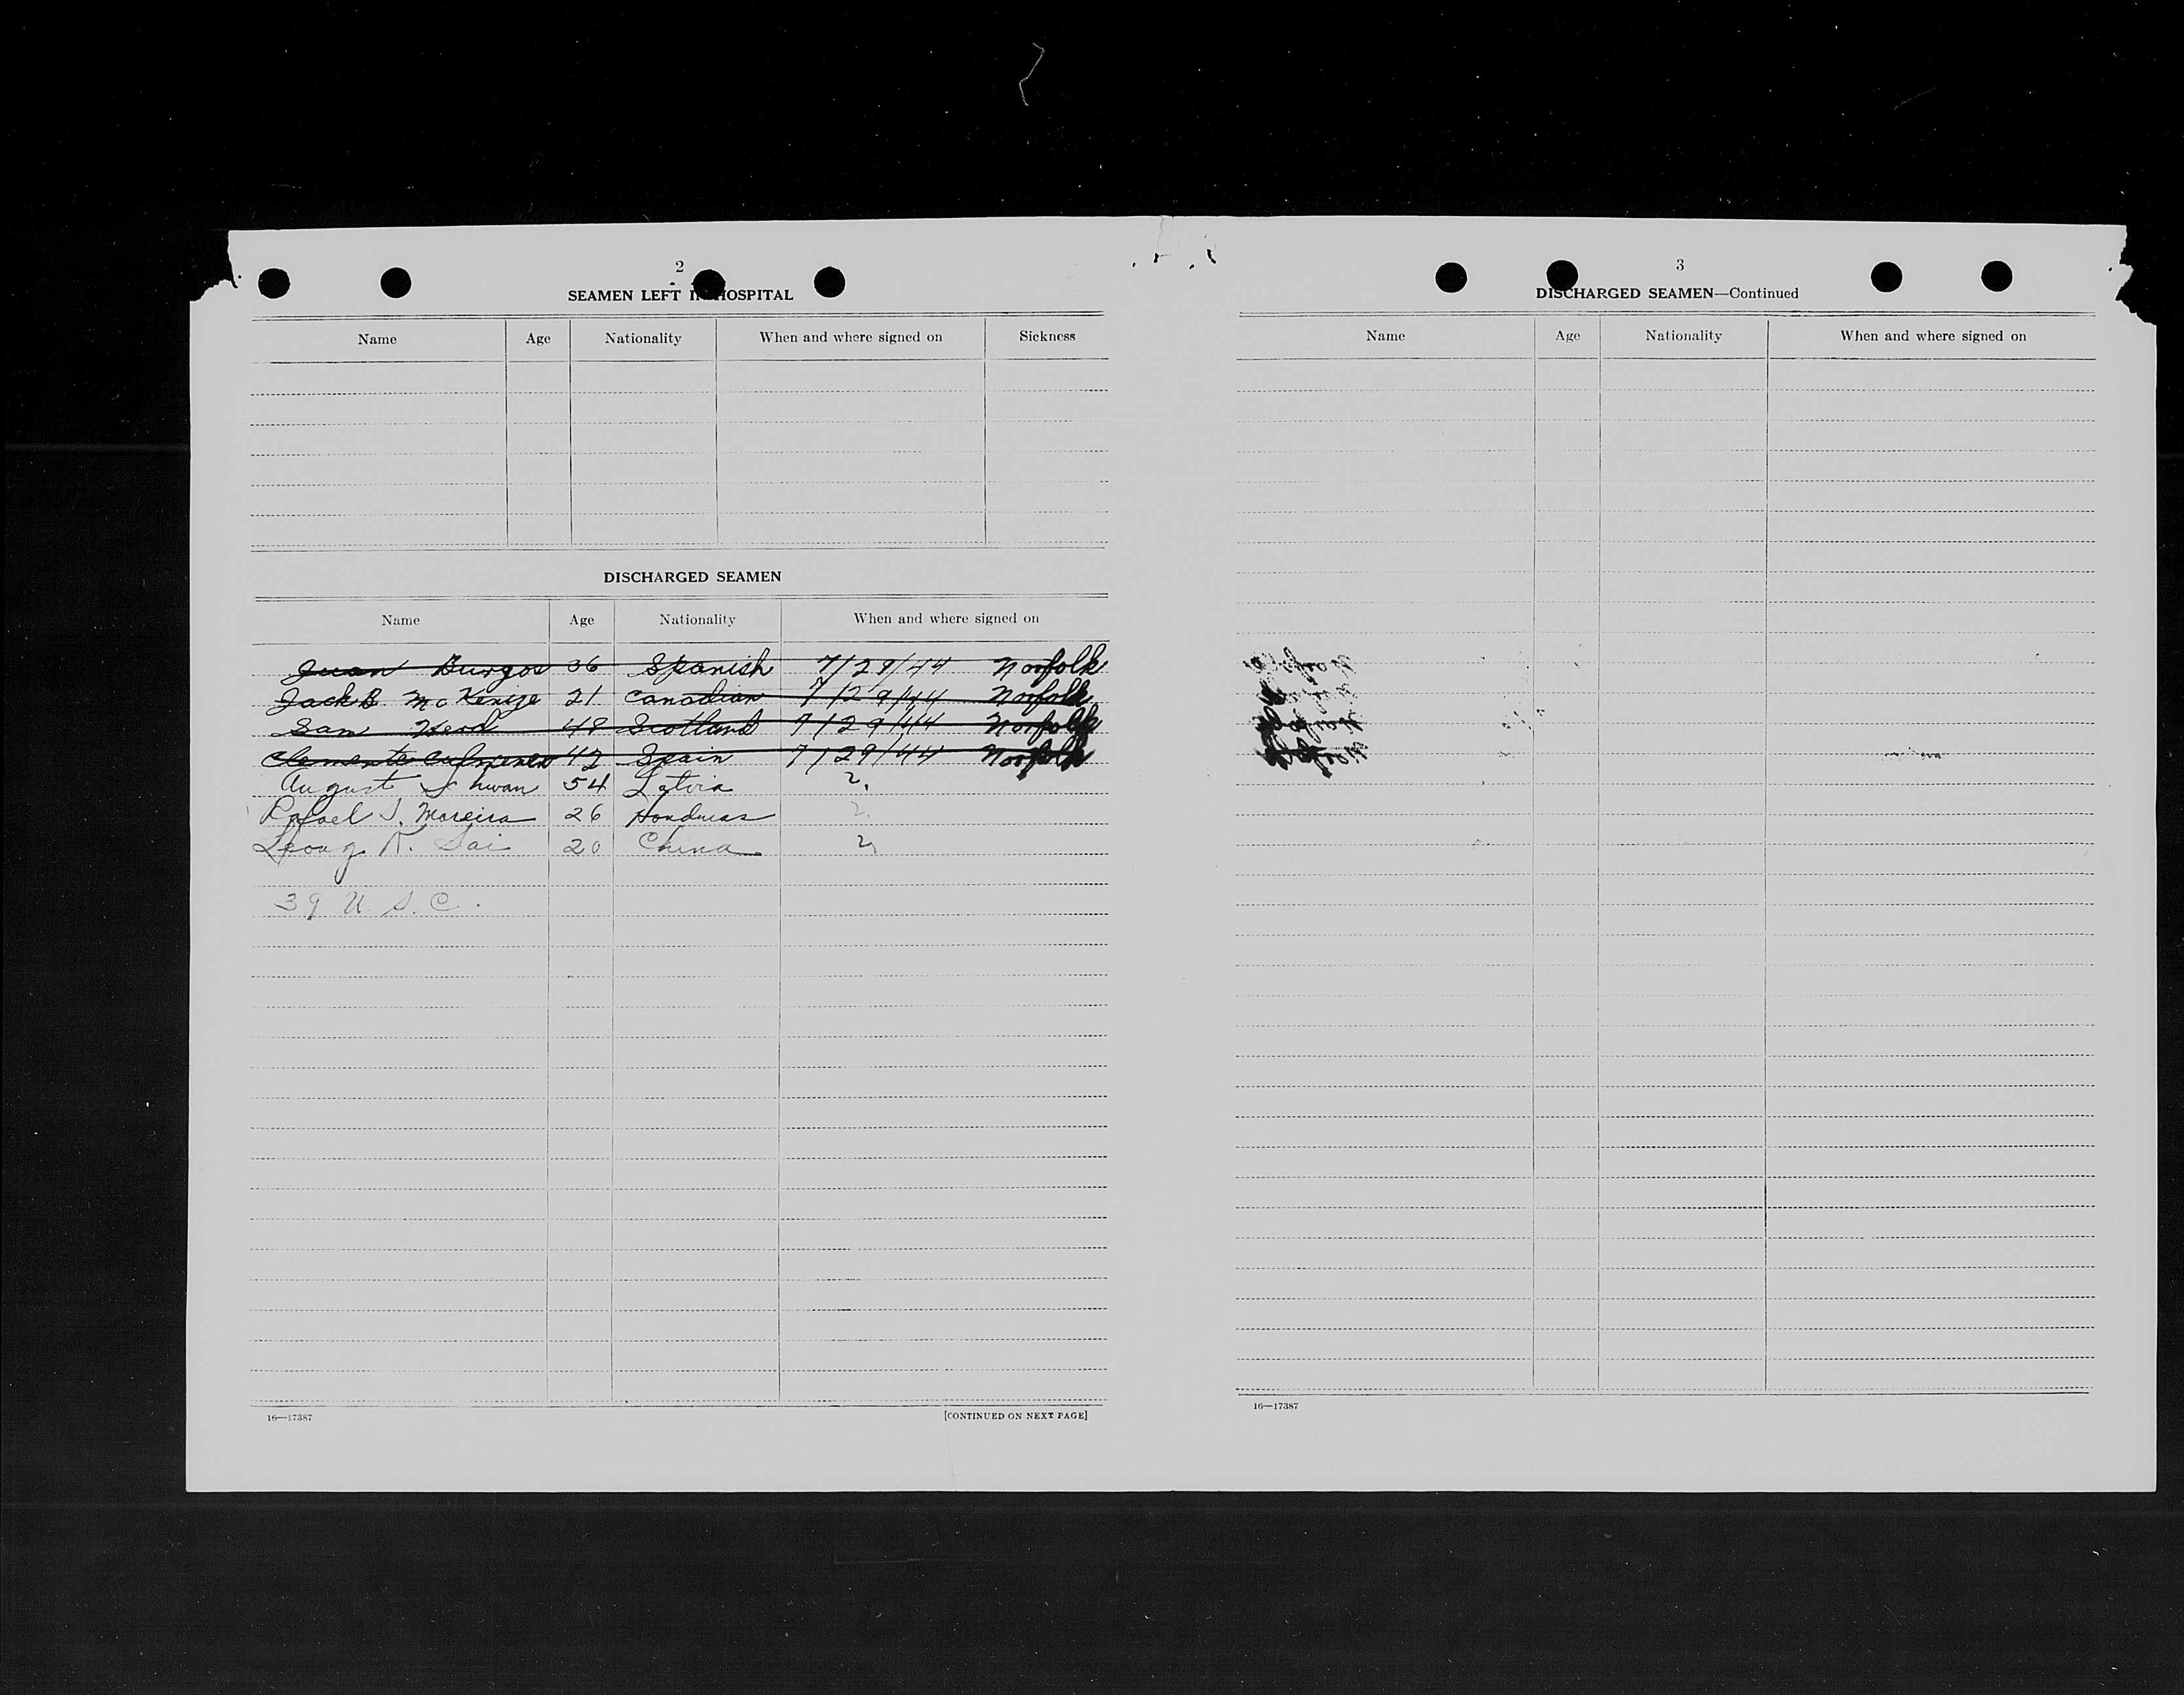 2
SEAMEN LEFT IN HOSPITAL
Name Age Nationality When and where signed on Sickness
DISCHARGED SEAMEN
Name Age Nationality When and where signed on
Juan Burgos 36 Spanish 7/29/44 Norfolk
Jack B. McKenzie 21 Canadian 7/29/44 Norfolk
Sam 48 Scotland 7/29/44 Norfolk
Clemente 42 Spain 7/29/44 Norfolk
August Schwan 54 Latvia ?
Rafael J. Moreira 26 Honduras ?
Leong K. Sai 20 China ?
39 U.S.C.
16—17387 [CONTINUED ON NEXT PAGE]
3
DISCHARGED SEAMEN—Continued
Name Age Nationality When and where signed on
16—17387